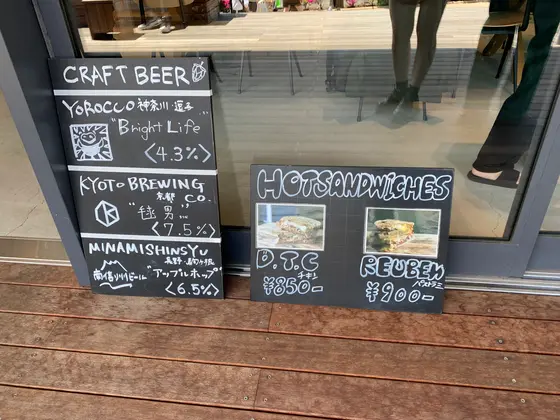 CRAFT BEER
YOROCCO 神奈川・逗子
"Bright Life
<4.3%>
KYOTO BREWING
京都 CO.
"毬男"
<7.5%>
MINAMISHINSYU
長野・駒ヶ根
南信州ビール "アップルホップ"
<6.5%>
HOTSANDWICHES
D.T.C
チキン
¥850-
REUBEN
パストラミ
¥900-